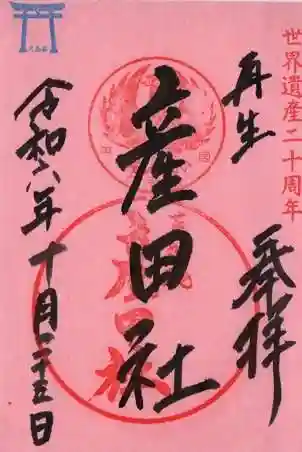 世界遺産二十周年
再生
奉拝
産田社
令和六年十月二十五日